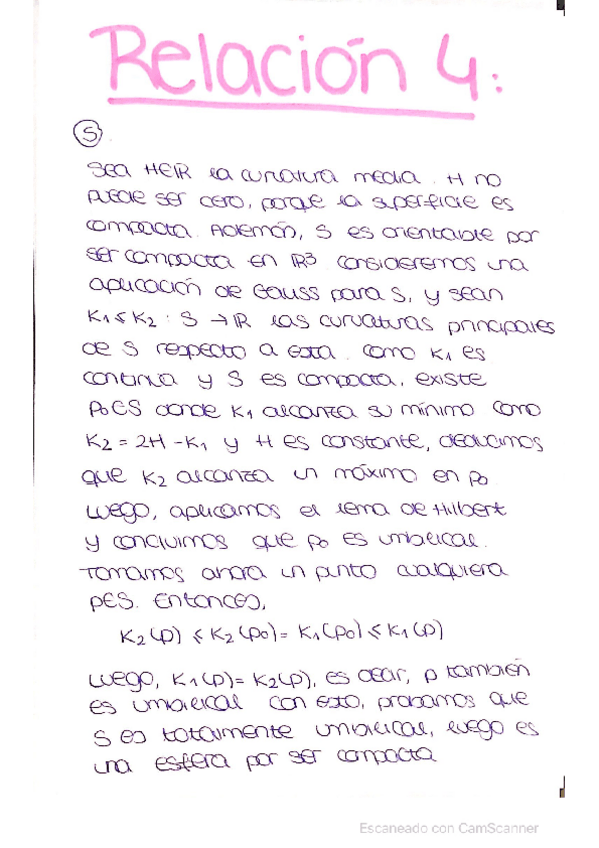 Relación 4:
5
Sea H∈ℝ la curvatura media. H no
puede ser cero, porque la superficie es
compacta. Además, S es orientable por
ser compacta en ℝ³. Consideremos una
aplicación de Gauss para S, y sean
K₁≤K₂: S→ℝ las curvaturas principales
de S respecto a esta. Como K₁ es
continua y S es compacta, existe
p₀∈S donde K₁ alcanza su mínimo como
K₂ = 2H - K₁ y H es constante, deducimos
que K₂ alcanza un máximo en p₀
Luego, aplicamos el lema de Hilbert
y concluimos que p₀ es umbilical.
Tomamos ahora un punto cualquiera
p∈S. Entonces,
K₂(p) ≤ K₂(p₀) = K₁(p₀) ≤ K₁(p)
Luego, K₁(p) = K₂(p), es decir, p también
es umbilical con esto, probamos que
S es totalmente umbilical, luego es
una esfera por ser compacta
Escaneado con CamScanner